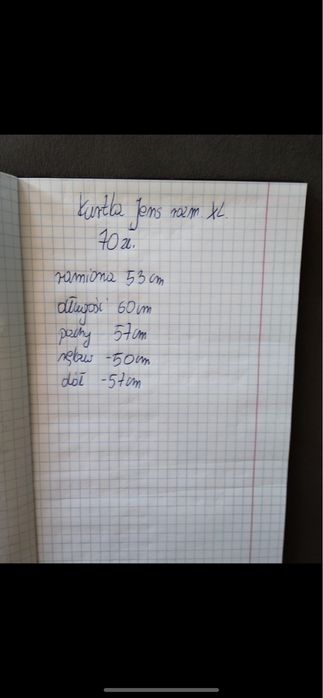 Kurtka Jens rozm. XL.
70 zł.
ramiona 53 cm
długość 60 cm
pachy 57 cm
rękaw -50 cm
dół -57 cm